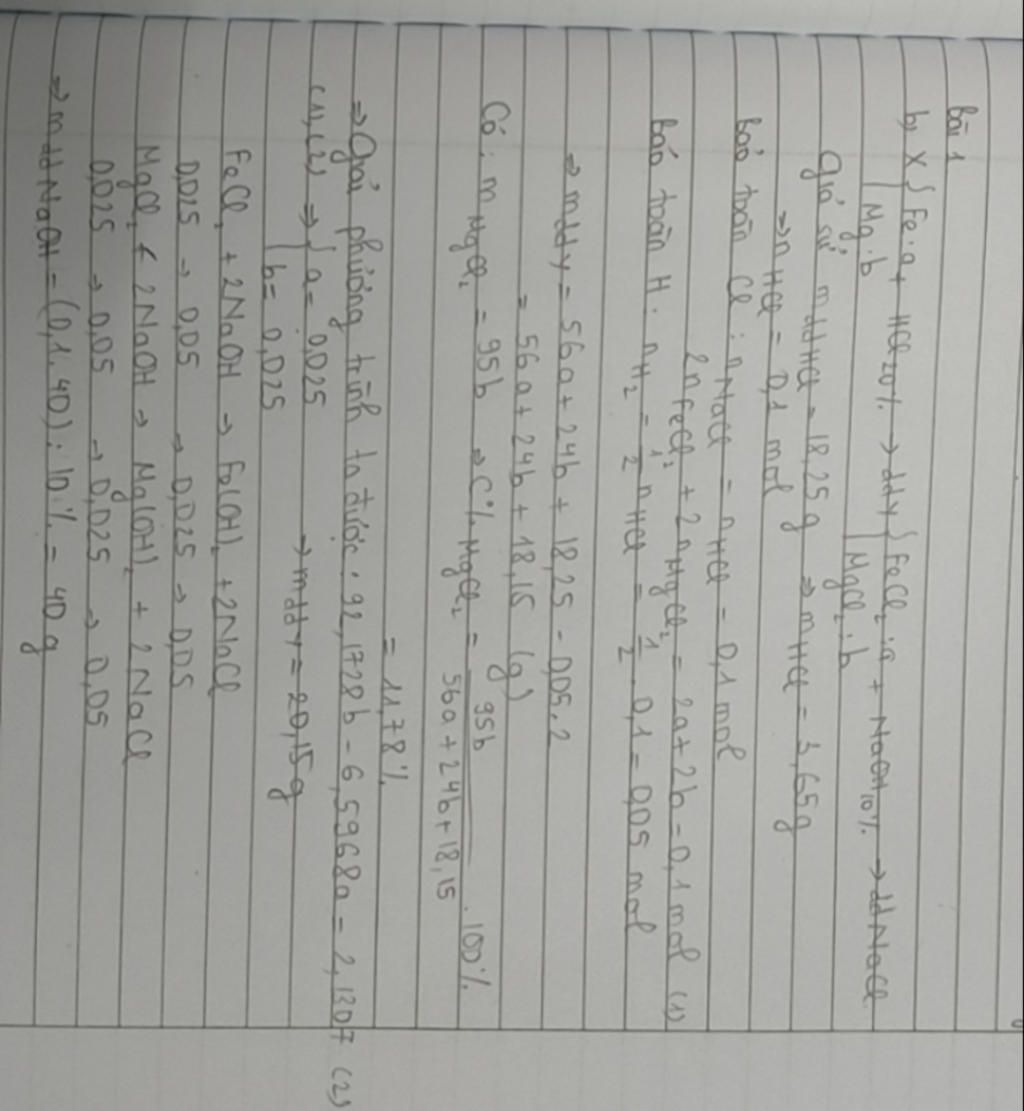 Bài 1
b, X { Fe: a + HCl 20% → ddY { FeCl₂: a + NaOH 10% → dd NaCl
Mg: b MgCl₂: b
Giả sử mdd HCl = 18,25g ⇒ mHCl = 3,65g
⇒ nHCl = 0,1 mol
Bảo toàn Cl: nNaCl = nHCl = 0,1 mol
2nFeCl₂ + 2nMgCl₂ = 2a + 2b = 0,1 mol (1)
Bảo toàn H: nH₂ = 1/2 nHCl = 1/2 . 0,1 = 0,05 mol
⇒ mddY = 56a + 24b + 18,25 - 0,05.2
= 56a + 24b + 18,15 (g)
Có: mMgCl₂ = 95b ⇒ C% MgCl₂ = 95b / (56a + 24b + 18,15) . 100%
= 11,78%
⇒ Giải phương trình ta được: 92,1728b - 6,5968a = 2,1307 (2)
(1), (2) ⇒ { a = 0,025
b = 0,025 → mddY = 20,15g
FeCl₂ + 2NaOH → Fe(OH)₂ + 2NaCl
0,025 → 0,05 → 0,025 → 0,05
MgCl₂ + 2NaOH → Mg(OH)₂ + 2NaCl
0,025 → 0,05 → 0,025 → 0,05
⇒ mdd NaOH = (0,1.40) : 10% = 40g